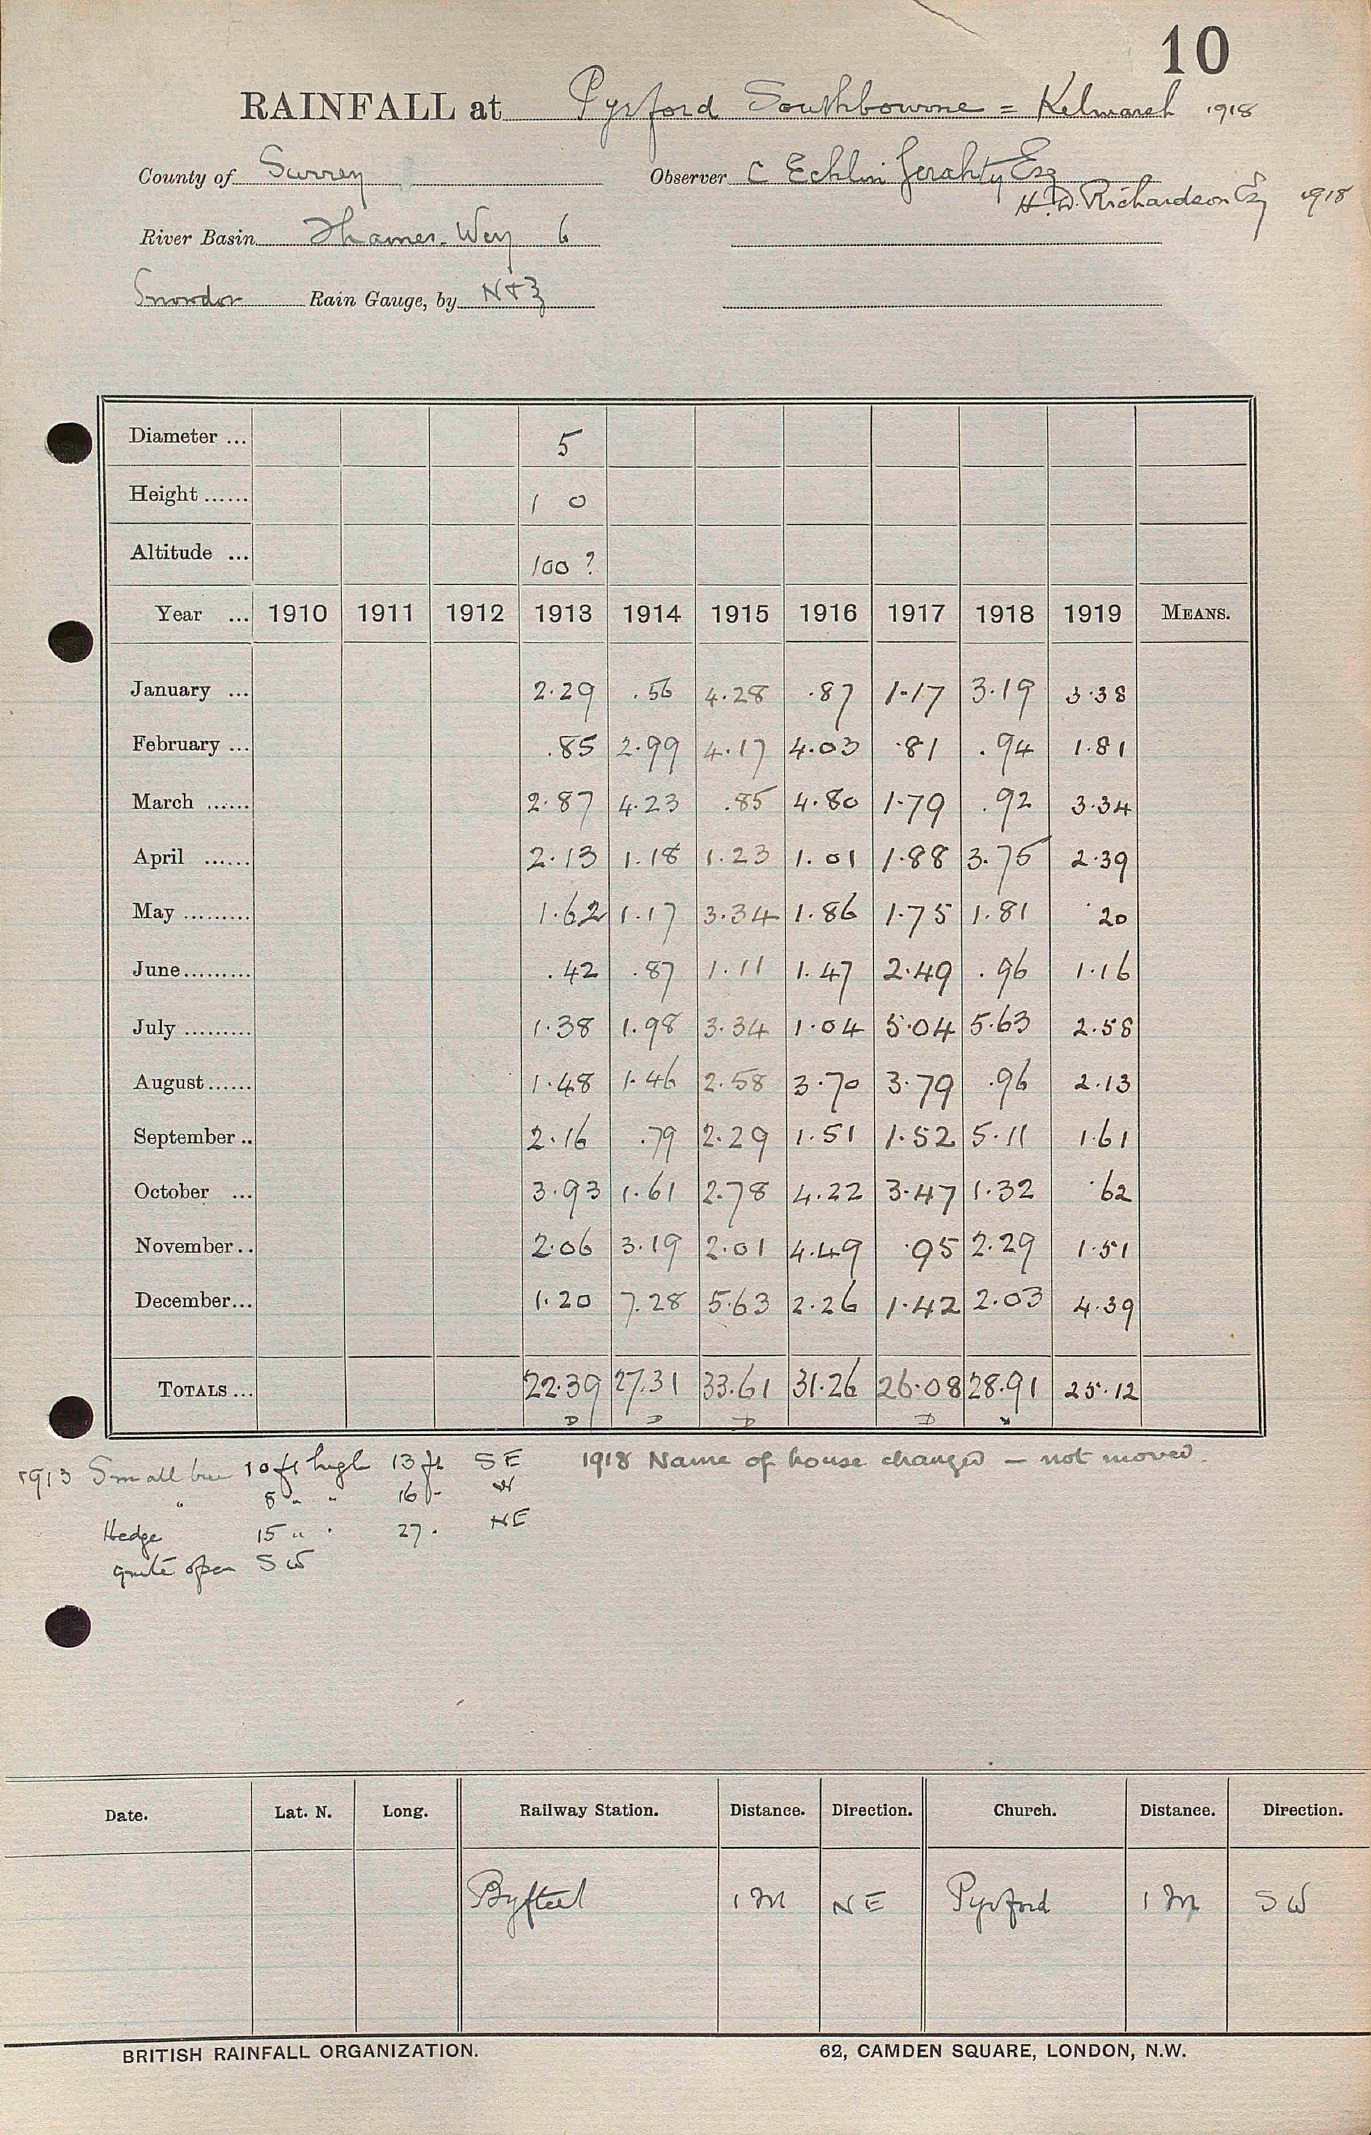 10
RAINFALL at Pyrford Southbourne = Kelmarsh 1918
County of Surrey Observer C Echlin Gerahty Esq
H. D. Richardson Esq 1918
River Basin Thames. Wey 6
Snowdon Rain Gauge, by N & Z
Diameter ... 5
Height ...... 1 0
Altitude ... 100 ?
Year ... 1910 1911 1912 1913 1914 1915 1916 1917 1918 1919 MEANS.
January ... 2.29 .56 4.28 .87 1.17 3.19 3.38
February ... .85 2.99 4.17 4.03 .81 .94 1.81
March ...... 2.87 4.23 .85 4.80 1.79 .92 3.34
April ...... 2.13 1.18 1.23 1.01 1.88 3.75 2.39
May ......... 1.62 1.17 3.34 1.86 1.75 1.81 .20
June......... .42 .87 1.11 1.47 2.49 .96 1.16
July ......... 1.38 1.98 3.34 1.04 5.04 5.63 2.58
August...... 1.48 1.46 2.58 3.70 3.79 .96 2.13
September .. 2.16 .79 2.29 1.51 1.52 5.11 1.61
October ... 3.93 1.61 2.78 4.22 3.47 1.32 .62
November .. 2.06 3.19 2.01 4.49 .95 2.29 1.51
December... 1.20 7.28 5.63 2.26 1.42 2.03 4.39
TOTALS ... 22.39 27.31 33.61 31.26 26.08 28.91 25.12
D D D D
1913 Small tree 10 ft high 13 ft SE 1918 Name of house changed — not moved.
" 8 " " 16 " W
Hedge 15 " " 27 " NE
quite open SW
Date. Lat. N. Long. Railway Station. Distance. Direction. Church. Distance. Direction.
Byfleet 1 M NE Pyrford 1 M SW
BRITISH RAINFALL ORGANIZATION. 62, CAMDEN SQUARE, LONDON, N.W.